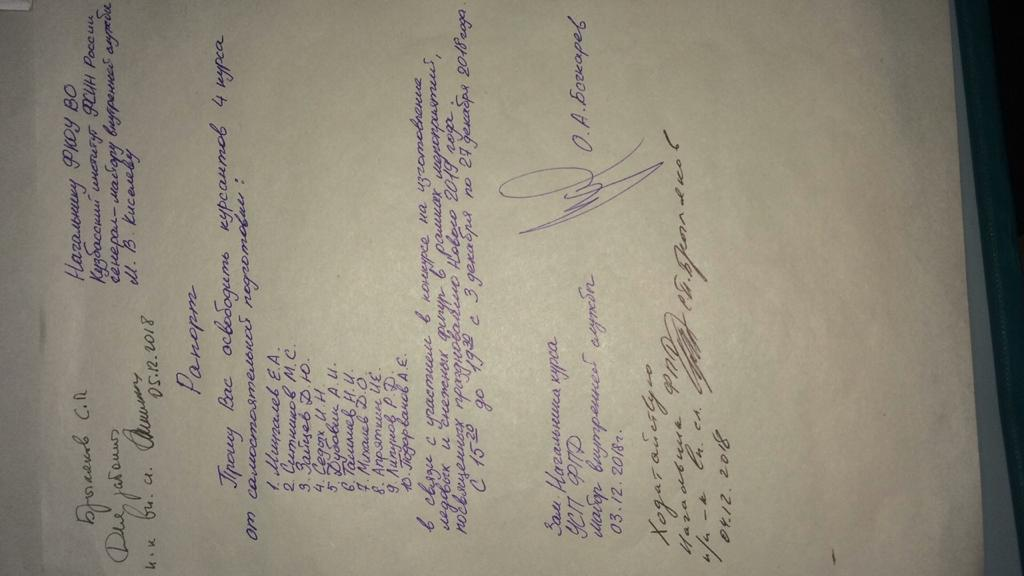 Брыляков С.П.
Для работы
п-к вн. сл.
05.12.2018
Начальнику ФКОУ ВО
Кузбасский институт ФСИН России
генерал-майору внутренней службы
М. В. Киселёву
Рапорт
Прошу Вас освободить курсантов 4 курса
от самостоятельной подготовки:
1. Е.А.
2. Ситников М.С.
3. Зайцев Д.Ю.
4. М.Н.
5. Дубовик А.И.
6. Н.И.
7. Михалев Д.О.
8. И.Е.
9. Р.Ф.
10. А.Е.
в связи с участием в конкурсе на изготовление
ледовых и снежных фигур в рамках мероприятий,
посвященных празднованию Нового 2019 года.
С 15-20 до 17-30 с 3 декабря по 21 декабря 2018 года.
Зам. Начальника курса
ФПР
майор внутренней службы
О.А.Бочкарев
03.12.2018г.
Ходатайствую
Начальник ФПР
п/п-к вн. сл. С.П.Брыляков
04.12.2018